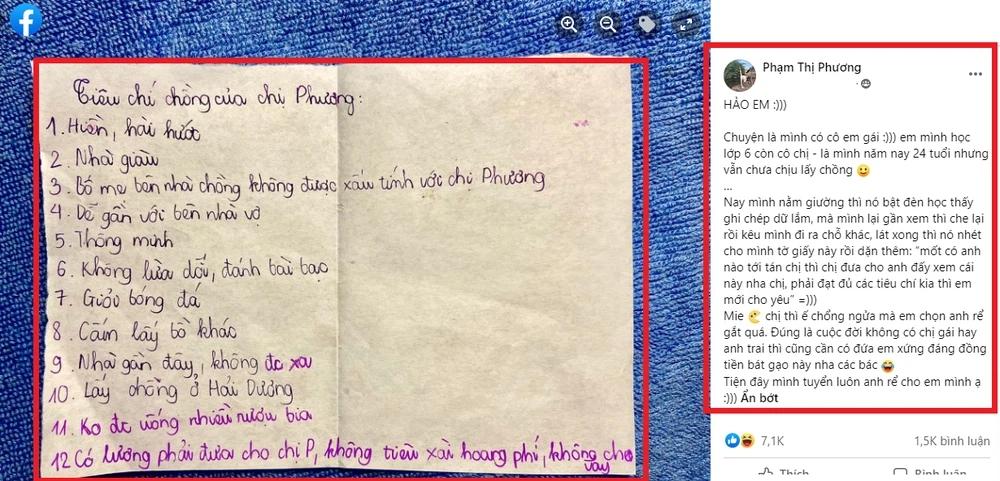 Tiêu chí chồng của chị Phương:
1. Hiền, hài hước
2. Nhà giàu
3. Bố mẹ bên nhà chồng không được xấu tính với chị Phương
4. Dễ gần với bên nhà vợ
5. Thông minh
6. Không lừa dối, đánh bài bạc
7. Giỏi bóng đá
8. Cấm lấy bồ khác
9. Nhà gần đây, không đc xa
10. Lấy chồng ở Hải Dương
11. Ko đc uống nhiều rượu bia
12 Có lương phải đưa cho chị P, không tiêu xài hoang phí, không cho
vay
Phạm Thị Phương
HẢO EM :)))
Chuyện là mình có cô em gái :))) em mình học
lớp 6 còn cô chị - là mình năm nay 24 tuổi nhưng
vẫn chưa chịu lấy chồng 🙂
...
Nay mình nằm giường thì nó bật đèn học thấy
ghi chép dữ lắm, mà mình lại gần xem thì che lại
rồi kêu mình đi ra chỗ khác, lát xong thì nó nhét
cho mình tờ giấy này rồi dặn thêm: "mốt có anh
nào tới tán chị thì chị đưa cho anh đấy xem cái
này nha chị, phải đạt đủ các tiêu chí kia thì em
mới cho yêu" =)))
Mie chị thì ế chổng ngửa mà em chọn anh rể
gắt quá. Đúng là cuộc đời không có chị gái hay
anh trai thì cũng cần có đứa em xứng đáng đồng
tiền bát gạo này nha các bác 😆
Tiện đây mình tuyển luôn anh rể cho em mình ạ
:))) Ẩn bớt
7,1K 1,5K bình luận
Thích Bình luận